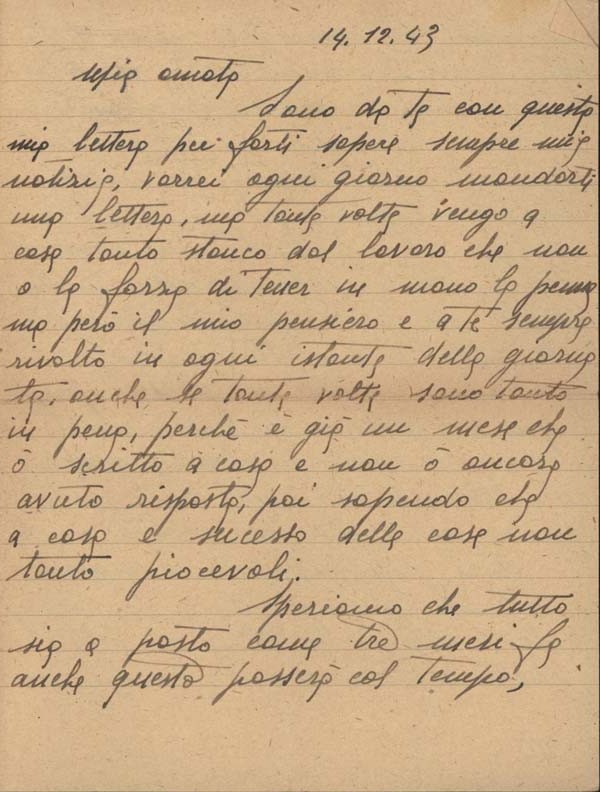 14. 12. 43
Mia amata
Sono da te con questa
mia lettera per farti sapere sempre mie
notizie, vorrei ogni giorno mandarti
una lettera, ma tante volte vengo a
casa tanto stanco dal lavoro che non
o la forza di tener in mano la penna
ma però il mio pensiero e a te sempre
rivolto in ogni istante della giorna
ta, anche se tante volte sono tanto
in pena, perchè è già un mese che
ò scritto a casa e non ò ancora
avuto risposta, poi sapendo che
a casa e sucesso delle cose non
tanto piacevoli.
Speriamo che tutto
sia a posto come tre mesi fa
anche questa passerà col tempo,